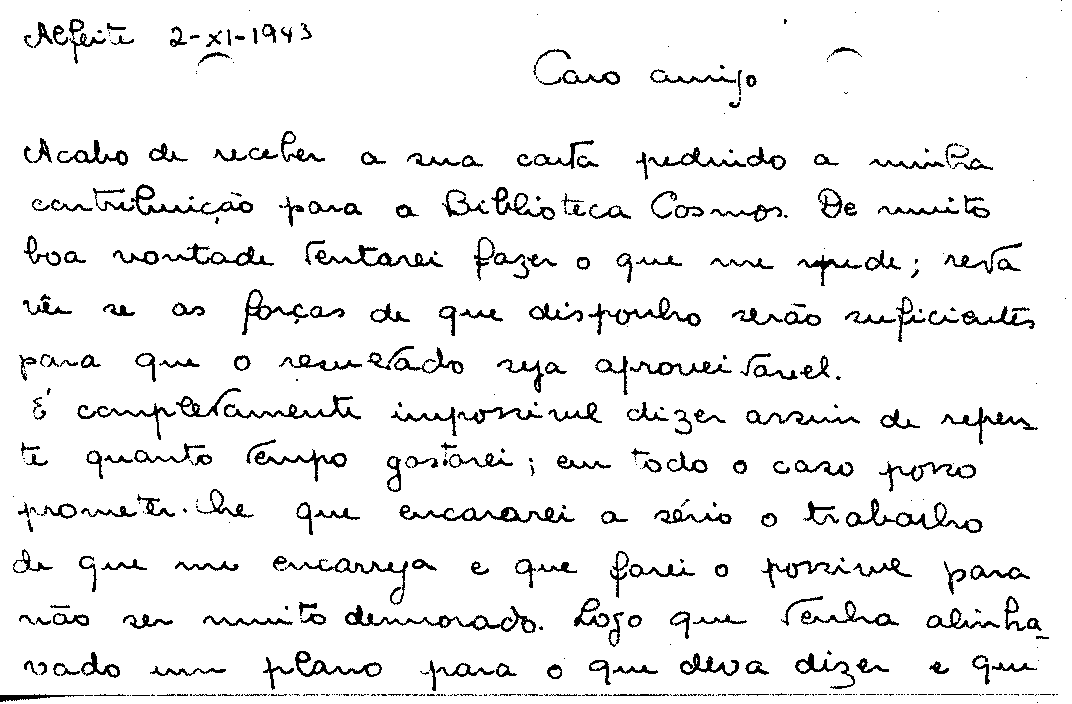 Alfeite 2-XI-1943
Caro amigo
Acabo de receber a sua carta pedindo a minha
contribuição para a Biblioteca Cosmos. De muito
boa vontade tentarei fazer o que me pede; resta
vêr se as forças de que disponho serão suficientes
para que o resultado seja aproveitável.
É completamente impossivel dizer assim de repen
te quanto tempo gastarei; em todo o caso posso
prometer-lhe que encararei a sério o trabalho
de que me encarrega e que farei o possivel para
não ser muito demorado. Logo que tenha alinha_
vado um plano para o que deva dizer e que